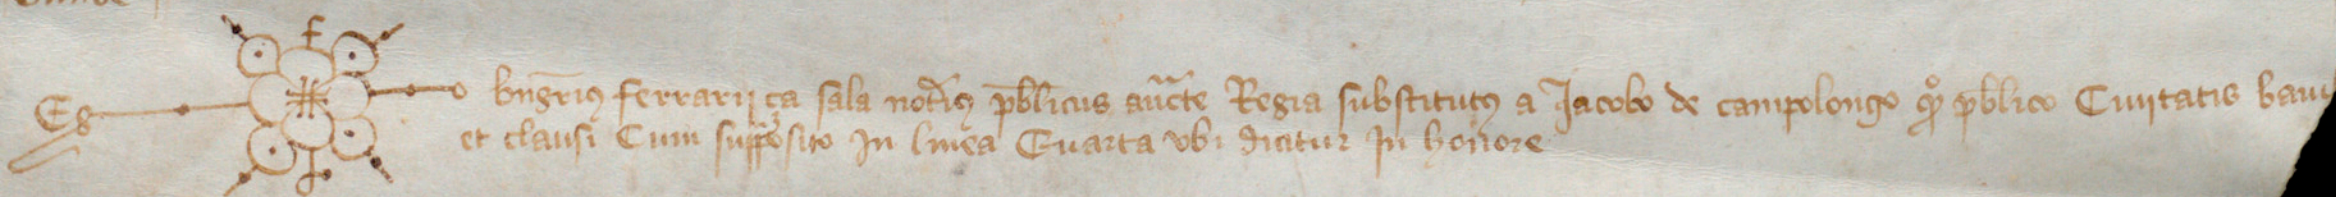 Eg bngrius ferrarii ça sala notarius publicus aucte Regia substitutus a Jacobo de campolongo publico Civitatis
et clausi Cum supposito In linea Quarta ubi dicitur In honore